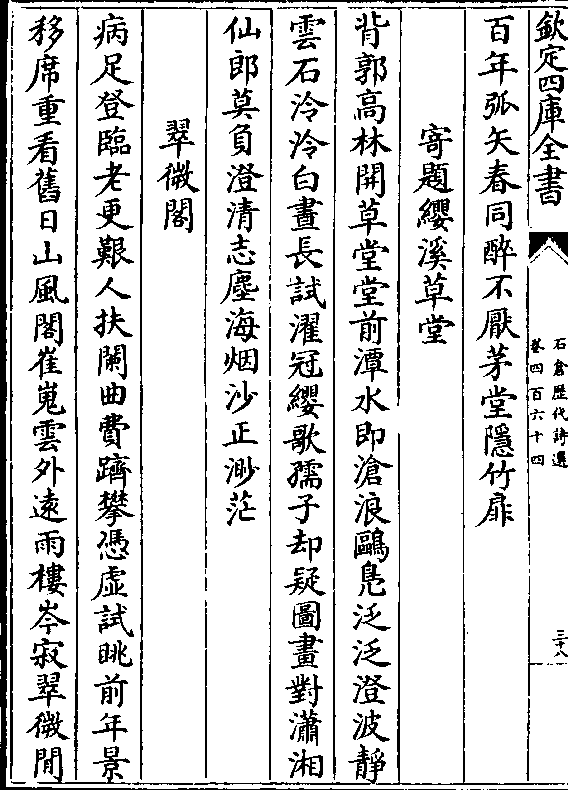 欽定四庫全書
石倉歴代詩選
卷四百六十四
三十八
百年弧矢春同醉不厭茅堂隱竹扉
寄題纓溪草堂
背郭高林開草堂堂前潭水即滄浪鷗鳧泛泛澄波靜
雲石泠泠白晝長試濯冠纓歌孺子却疑圖畫對瀟湘
仙郎莫負澄清志塵海烟沙正渺茫
翠微閣
病足登臨老更艱人扶闌曲費躋攀憑虛試眺前年景
移席重看舊日山風閣崔嵬雲外遠雨樓岑寂翠微間